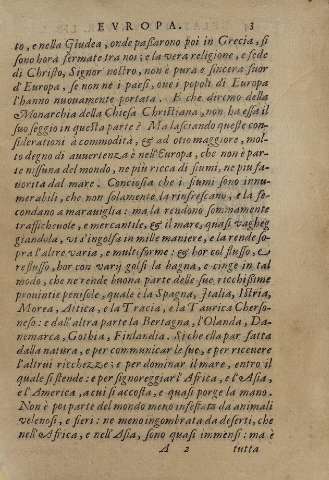 EVROPA. 3
to, e nella Giudea, onde passarono poi in Grecia, si
sono hora fermate tra noi; e la vera religione, e fede
di Christo, Signor nostro, non è pura e sincera fuor
d'Europa, se non nè i paesi, oue i popoli di Europa
l'hanno nuouamente portata. E che diremo della
Monarchia della Chiesa Christiana, non ha essa il
suo seggio in questa parte? Ma lasciando queste con-
siderationi a commodità, & ad otio maggiore, mol-
to degno di auuertenza è nell'Europa, che non è par-
te nissuna del mondo, ne piu ricca di fiumi, ne piu fa-
uorita dal mare. Conciosia che i fiumi sono innu-
merabili, che non solamente la rinfrescano, e la fe-
condano a marauiglia: ma la rendono sommamente
trafficheuole, e mercantile, & il mare, quasi vagheg
giandola, vi s'ingolfa in mille maniere, e la rende so-
pra l'altre varia, e multiforme: & hor col flusso, e
reflusso, hor con varij golfi la bagna, e cinge in tal
modo, che ne rende buona parte delle sue ricchissime
prouintie penisole, quale è la Spagna, Italia, Istria,
Morea, Attica, e la Tracia, e la Taurica Cherso-
neso: e dall'altra parte la Bertagna, l'Olanda, Da-
nemarca, Gothia, Finlandia. Si che ella par fatta
dalla natura, e per communicar le sue, e per riceuere
l'altrui ricchezze; e per dominar il mare, entro il
quale si stende: e per signoreggiar l'Africa, e l'Asia,
e l'America, a cui si accosta, e quasi porge la mano.
Non è poi parte del mondo meno infestata da animali
velenosi, e fieri: ne meno ingombrata da deserti, che
nell'Africa, e nell'Asia, sono quasi immensi: ma è
A 2 tutta